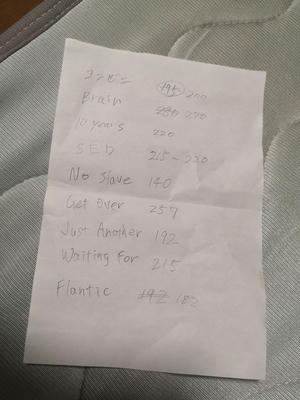 コンビニ 195 200
Brain 280 270
10 years 220
SED 215~220
No Slave 140
Get Over 257
Just Another 192
Waiting For 215
Flantic 192 182